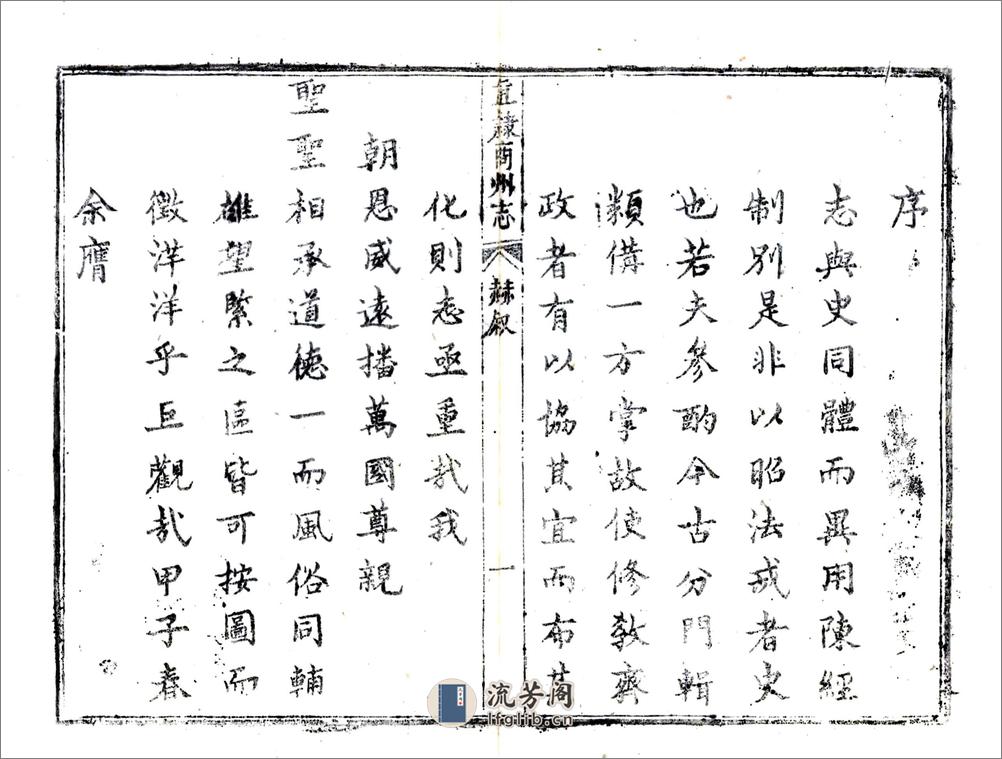 序
志與史同體而異用陳經
制別是非以昭法戒者史
也若夫參酌今古分門輯
類備一方掌故使修教齊
政者有以協其宜而布其
直隸商州志
赫叙
一
化則志亟重哉我
朝恩威遠播萬國尊親
聖聖相承道德一而風俗同輔
雄望緊之區皆可按圖而
徵洋洋乎巨觀哉甲子春
余膺
流芳阁
lfglib.cn